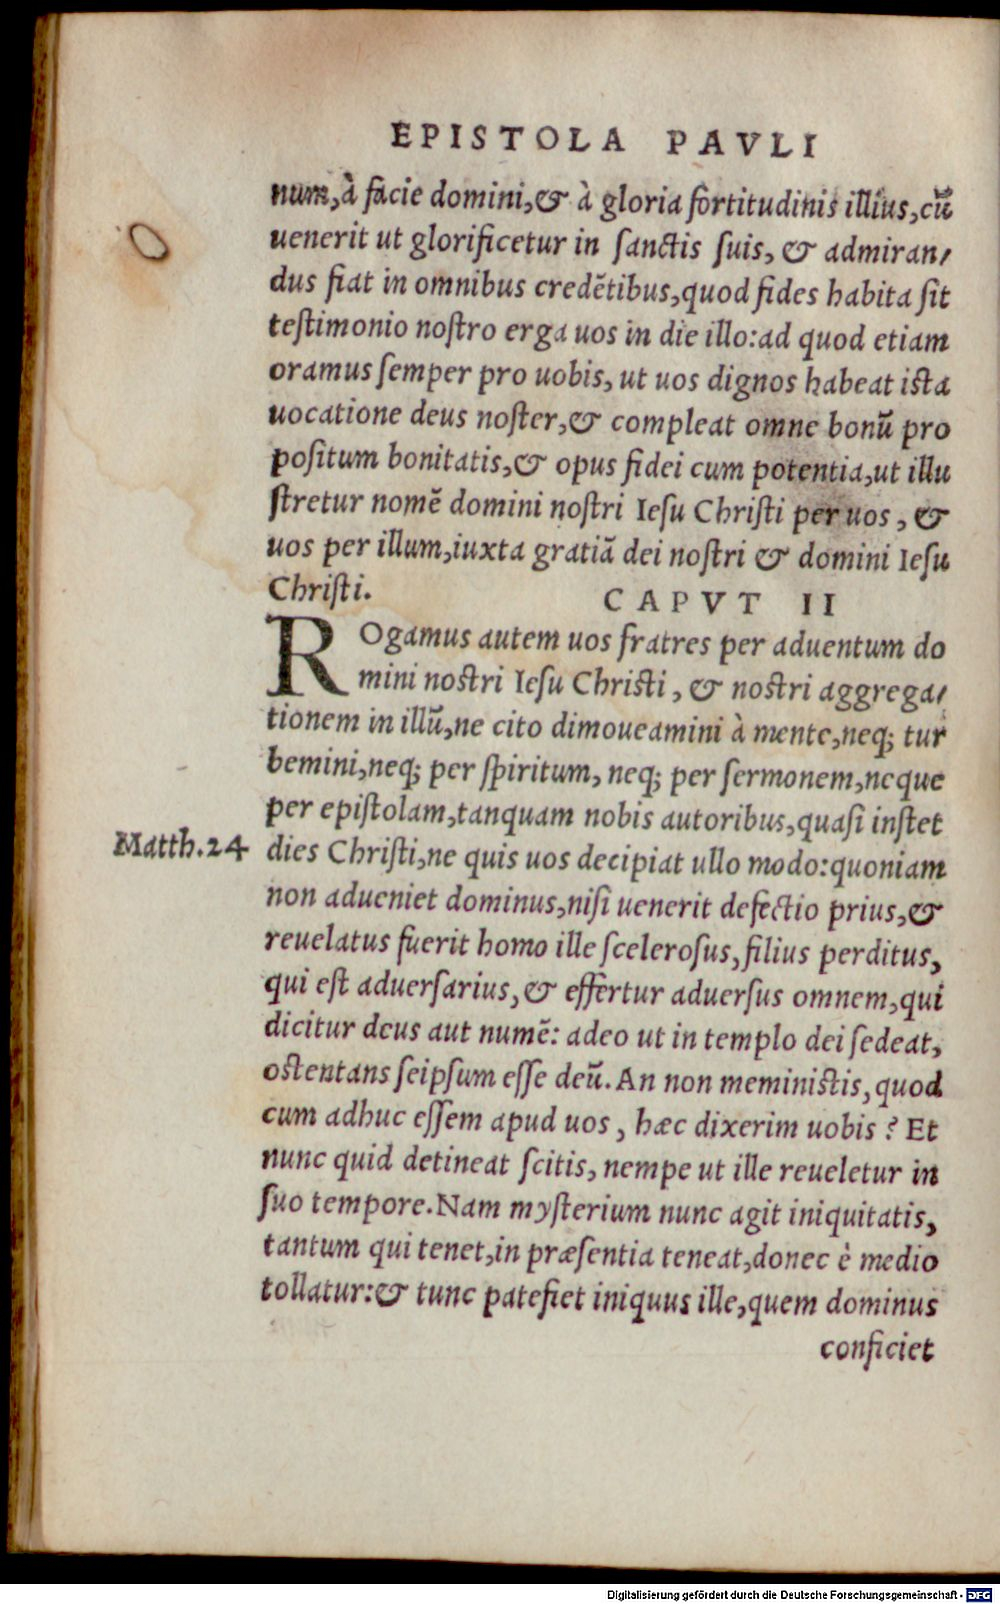 EPISTOLA PAVLI
num,à facie domini,& à gloria fortitudinis illius,cũ
uenerit ut glorificetur in ſanctis ſuis, & admiran/
dus fiat in omnibus credẽtibus,quod fides habita ſit
teſtimonio noſtro erga uos in die illo:ad quod etiam
oramus ſemper pro uobis, ut uos dignos habeat iſta
uocatione deus noſter,& compleat omne bonũ pro
poſitum bonitatis,& opus fidei cum potentia,ut illu
ſtretur nomẽ domini noſtri Ieſu Chriſti per uos, &
uos per illum,iuxta gratiã dei noſtri & domini Ieſu
Chriſti.
CAPVT II
ROgamus autem uos fratres per aduentum do
mini noſtri Ieſu Chriſti, & noſtri aggrega/
tionem in illũ,ne cito dimoueamini à mente,neq; tur
bemini,neq; per ſpiritum, neq; per ſermonem,neque
per epiſtolam,tanquam nobis autoribus,quaſi inſtet
Matth.24
dies Chriſti,ne quis uos decipiat ullo modo:quoniam
non adueniet dominus,niſi uenerit defectio prius,&
reuelatus fuerit homo ille ſceleroſus,filius perditus,
qui eſt aduerſarius,& effertur aduerſus omnem,qui
dicitur deus aut numẽ: adeo ut in templo dei ſedeat,
oſtentans ſeipſum eſſe deũ. An non meminiſtis,quod
cum adhuc eſſem apud uos, hæc dixerim uobis? Et
nunc quid detineat ſcitis, nempe ut ille reueletur in
ſuo tempore.Nam myſterium nunc agit iniquitatis,
tantum qui tenet,in præſentia teneat,donec è medio
tollatur:& tunc patefiet iniquus ille,quem dominus
conficiet
Digitalisierung gefördert durch die Deutsche Forschungsgemeinschaft - DFG